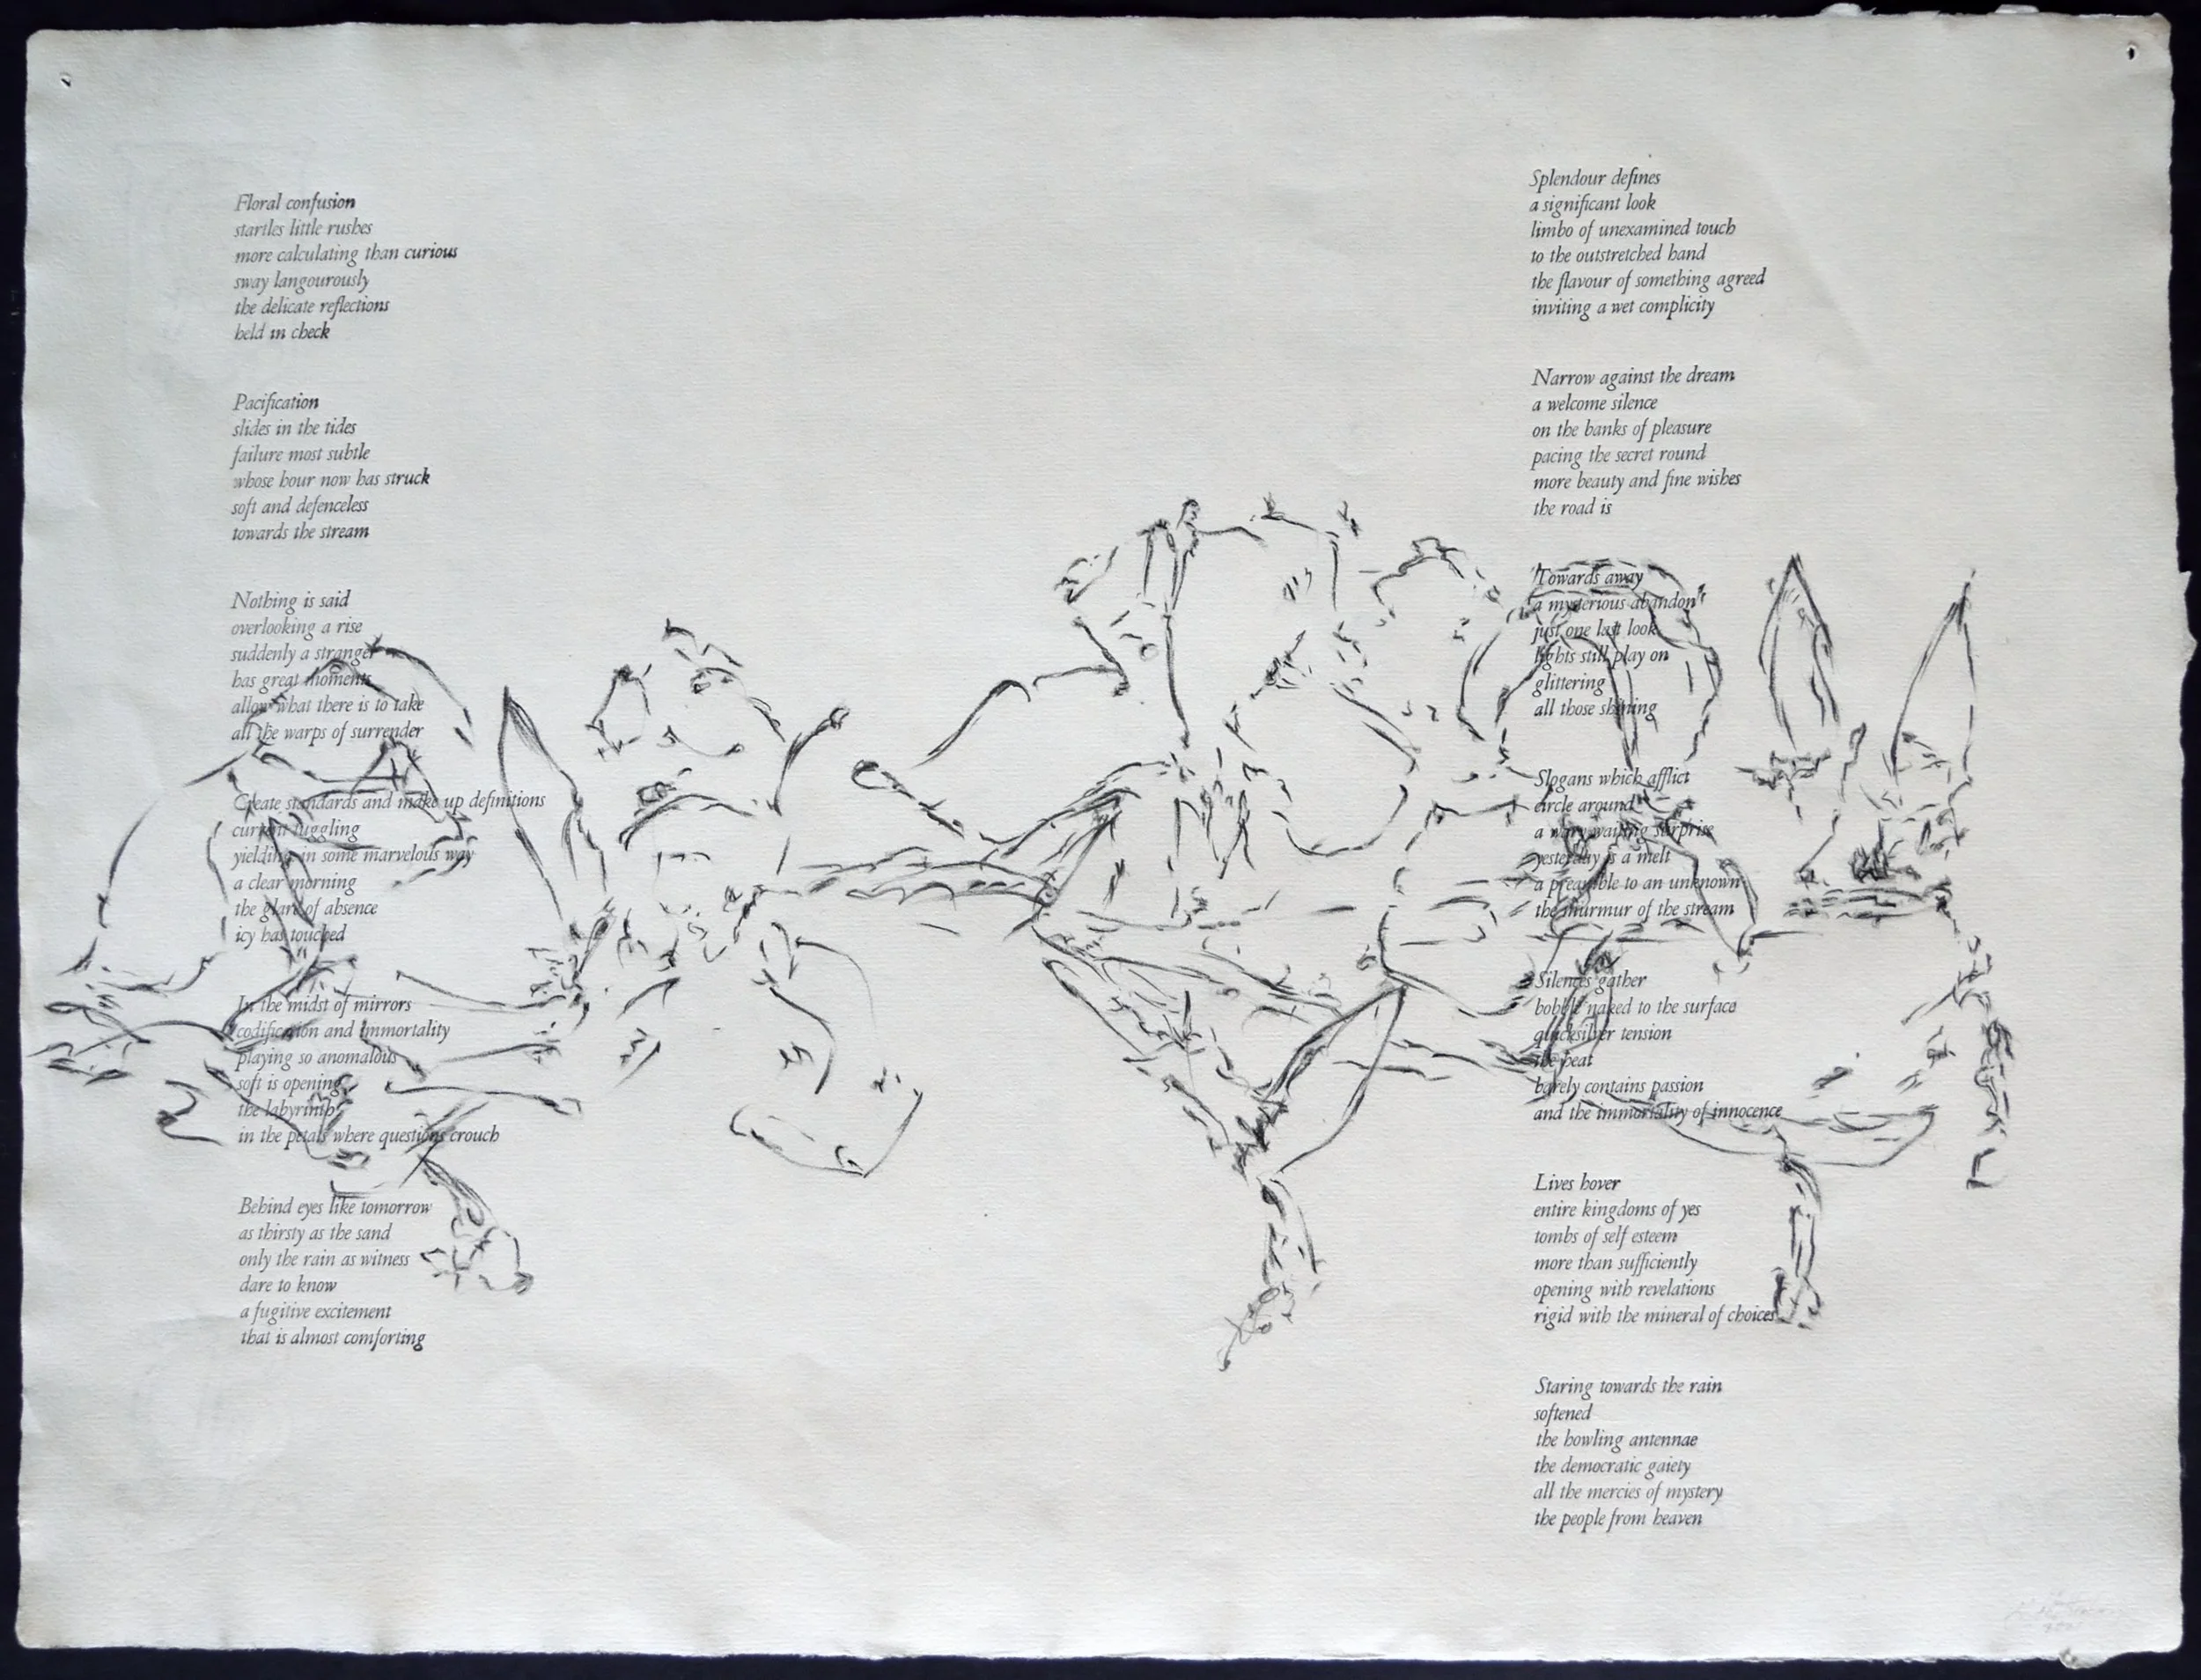 Floral confusion
startles little rushes
more calculating than curious
sway langourously
the delicate reflections
held in check
Pacification
slides in the tides
failure most subtle
whose hour now has struck
soft and defenceless
towards the stream
Nothing is said
overlooking a rise
suddenly a stranger
has great moments
allow what there is to take
all the warps of surrender
Create standards and make up definitions
current tuggling
yielding in some marvelous way
a clear morning
the glare of absence
icy has touched
In the midst of mirrors
codification and immortality
playing so anomalous
soft is opening
the labyrinth
in the petals where questions crouch
Behind eyes like tomorrow
as thirsty as the sand
only the rain as witness
dare to know
a fugitive excitement
that is almost comforting
Splendour defines
a significant look
limbo of unexamined touch
to the outstretched hand
the flavour of something agreed
inviting a wet complicity
Narrow against the dream
a welcome silence
on the banks of pleasure
pacing the secret round
more beauty and fine wishes
the road is
Towards away
a mysterious abandon
just one last look
lights still play on
glittering
all those shining
Slogans which afflict
circle around
a wary waiting surprise
yesterday is a melt
a preamble to an unknown
the murmur of the stream
Silences gather
bobble naked to the surface
quicksilver tension
the heat
barely contains passion
and the immortality of innocence
Lives hover
entire kingdoms of yes
tombs of self esteem
more than sufficiently
opening with revelations
rigid with the mineral of choices
Staring towards the rain
softened
the howling antennae
the democratic gaiety
all the mercies of mystery
the people from heaven